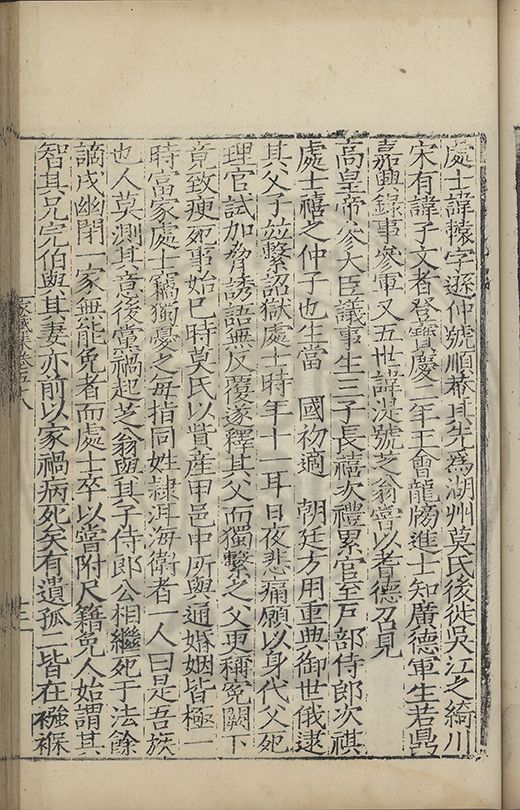 處士諱轅字遜仲號順菴其先爲湖州莫氏後徙吳江之綺川
宋有諱子文者登寶慶二年王會龍牓進士知廣德軍生若鼎
嘉興錄事參軍又五世諱湜號芝翁嘗以耆德召見
高皇帝參大臣議事生三子長禧次禮累官至戶部侍郎次祺
處士禧之仲子也生當 國初適 朝廷方用重典御世俄逮
其父子並繫詔獄處士時年十一耳日夜悲痛願以身代父死
理官試加脅誘語無反覆遂釋其父而獨繫之父更稱冤闕下
竟致瘐死事始已時莫氏以貲產甲邑中所與通婚姻皆極一
時富家處士竊獨憂之每指同姓隸洱海衛者一人曰是吾族
也人莫測其意後黨禍起芝翁與其子侍郎公相繼死于法餘
謫戍幽閉一家無能免者而處士卒以嘗附尺籍免人始謂其
智其兄完伯與其妻亦前以家禍病死矣有遺孤二皆在襁褓
家藏集卷五八